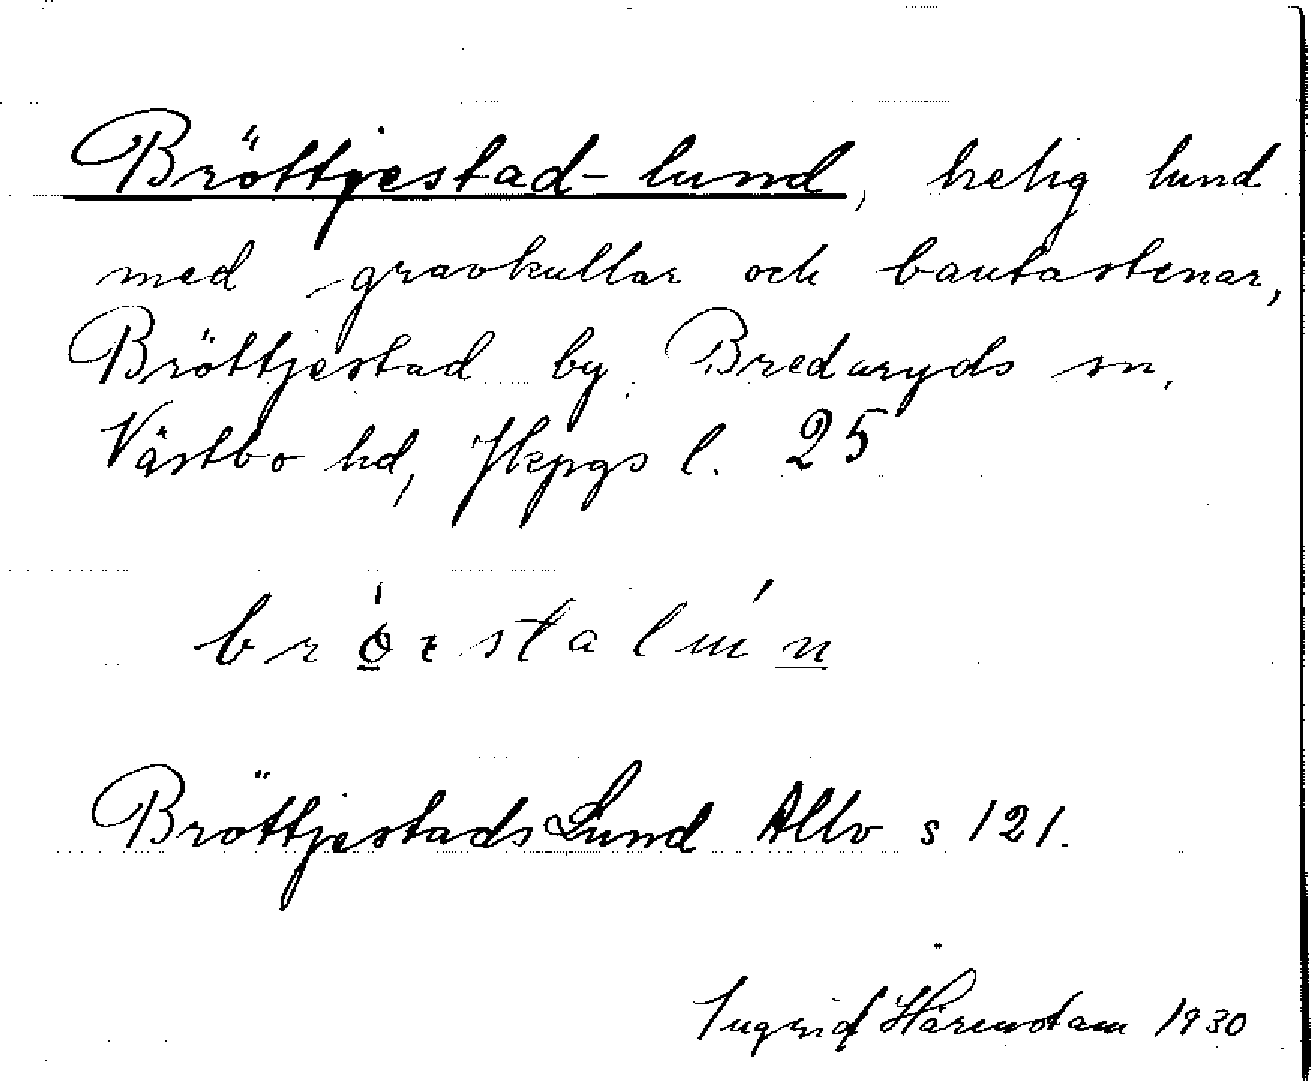 Bröttjestad-lund, helig lund
med gravkullar och bautastenar,
Bröttjestad by Bredaryds sn,
Västbo hd, Jkpgs l. 25
Bröttjestads Lund Allv s 121.
Ingrid Härenstam 1930